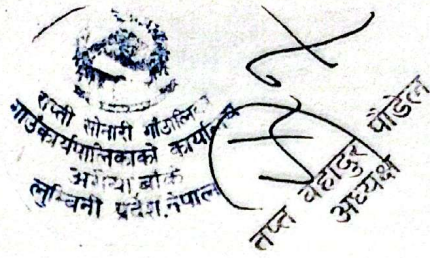 राप्ती सोनारी गाउँपालिका
गाउँकार्यपालिकाको कार्यालय
अगैया, बाँके
लुम्बिनी प्रदेश, नेपाल
तप्त बहादुर पौडेल
अध्यक्ष